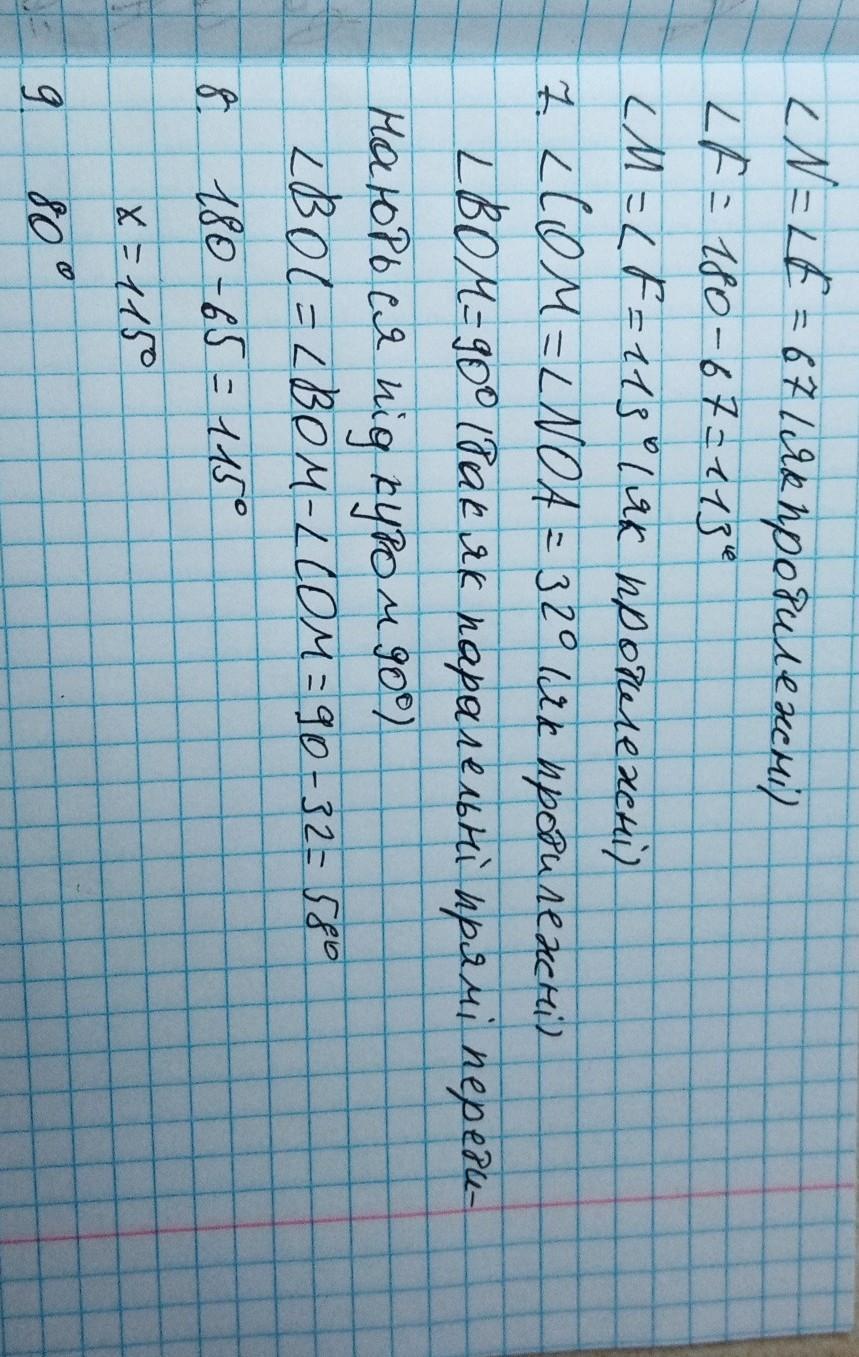 ∠N = ∠E = 67 (як протилежні)
∠F = 180 - 67 = 113°
∠M = ∠F = 113° (як протилежні)
7. ∠COM = ∠NOA = 32° (як протилежні)
∠BOM = 90° (так як паралельні прямі перети-
наються під кутом 90°)
∠BOC = ∠BOM - ∠COM = 90 - 32 = 58°
8. 180 - 65 = 115°
x = 115°
9. 80°